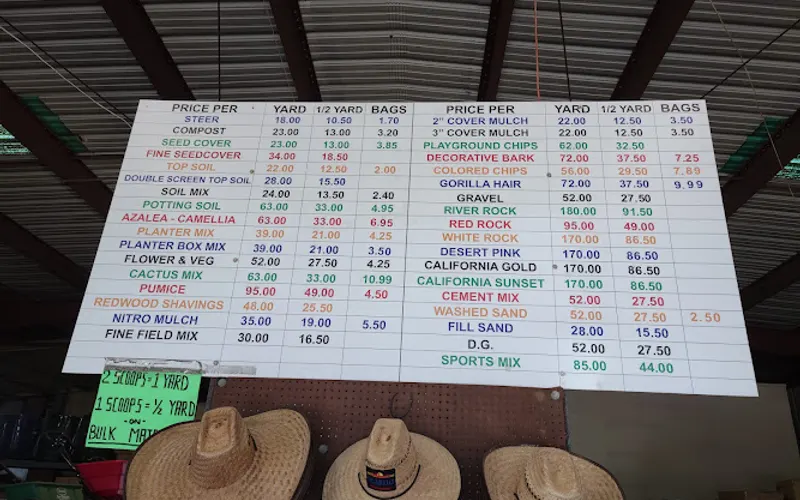 PRICE PER YARD 1/2 YARD BAGS
STEER 18.00 10.50 1.70
COMPOST 23.00 13.00 3.20
SEED COVER 23.00 13.00 3.85
FINE SEEDCOVER 34.00 18.50
TOP SOIL 22.00 12.50 2.00
DOUBLE SCREEN TOP SOIL 28.00 15.50
SOIL MIX 24.00 13.50 2.40
POTTING SOIL 63.00 33.00 4.95
AZALEA - CAMELLIA 63.00 33.00 6.95
PLANTER MIX 39.00 21.00 4.25
PLANTER BOX MIX 39.00 21.00 3.50
FLOWER & VEG 52.00 27.50 4.25
CACTUS MIX 63.00 33.00 10.99
PUMICE 95.00 49.00 4.50
REDWOOD SHAVINGS 48.00 25.50
NITRO MULCH 35.00 19.00 5.50
FINE FIELD MIX 30.00 16.50
PRICE PER YARD 1/2 YARD BAGS
2" COVER MULCH 22.00 12.50 3.50
3" COVER MULCH 22.00 12.50 3.50
PLAYGROUND CHIPS 62.00 32.50
DECORATIVE BARK 72.00 37.50 7.25
COLORED CHIPS 56.00 29.50 7.89
GORILLA HAIR 72.00 37.50 9.99
GRAVEL 52.00 27.50
RIVER ROCK 180.00 91.50
RED ROCK 95.00 49.00
WHITE ROCK 170.00 86.50
DESERT PINK 170.00 86.50
CALIFORNIA GOLD 170.00 86.50
CALIFORNIA SUNSET 170.00 86.50
CEMENT MIX 52.00 27.50
WASHED SAND 52.00 27.50 2.50
FILL SAND 28.00 15.50
D.G. 52.00 27.50
SPORTS MIX 85.00 44.00
2 SCOOPS = 1 YARD
1 SCOOPS = ½ YARD
-ON-
BULK